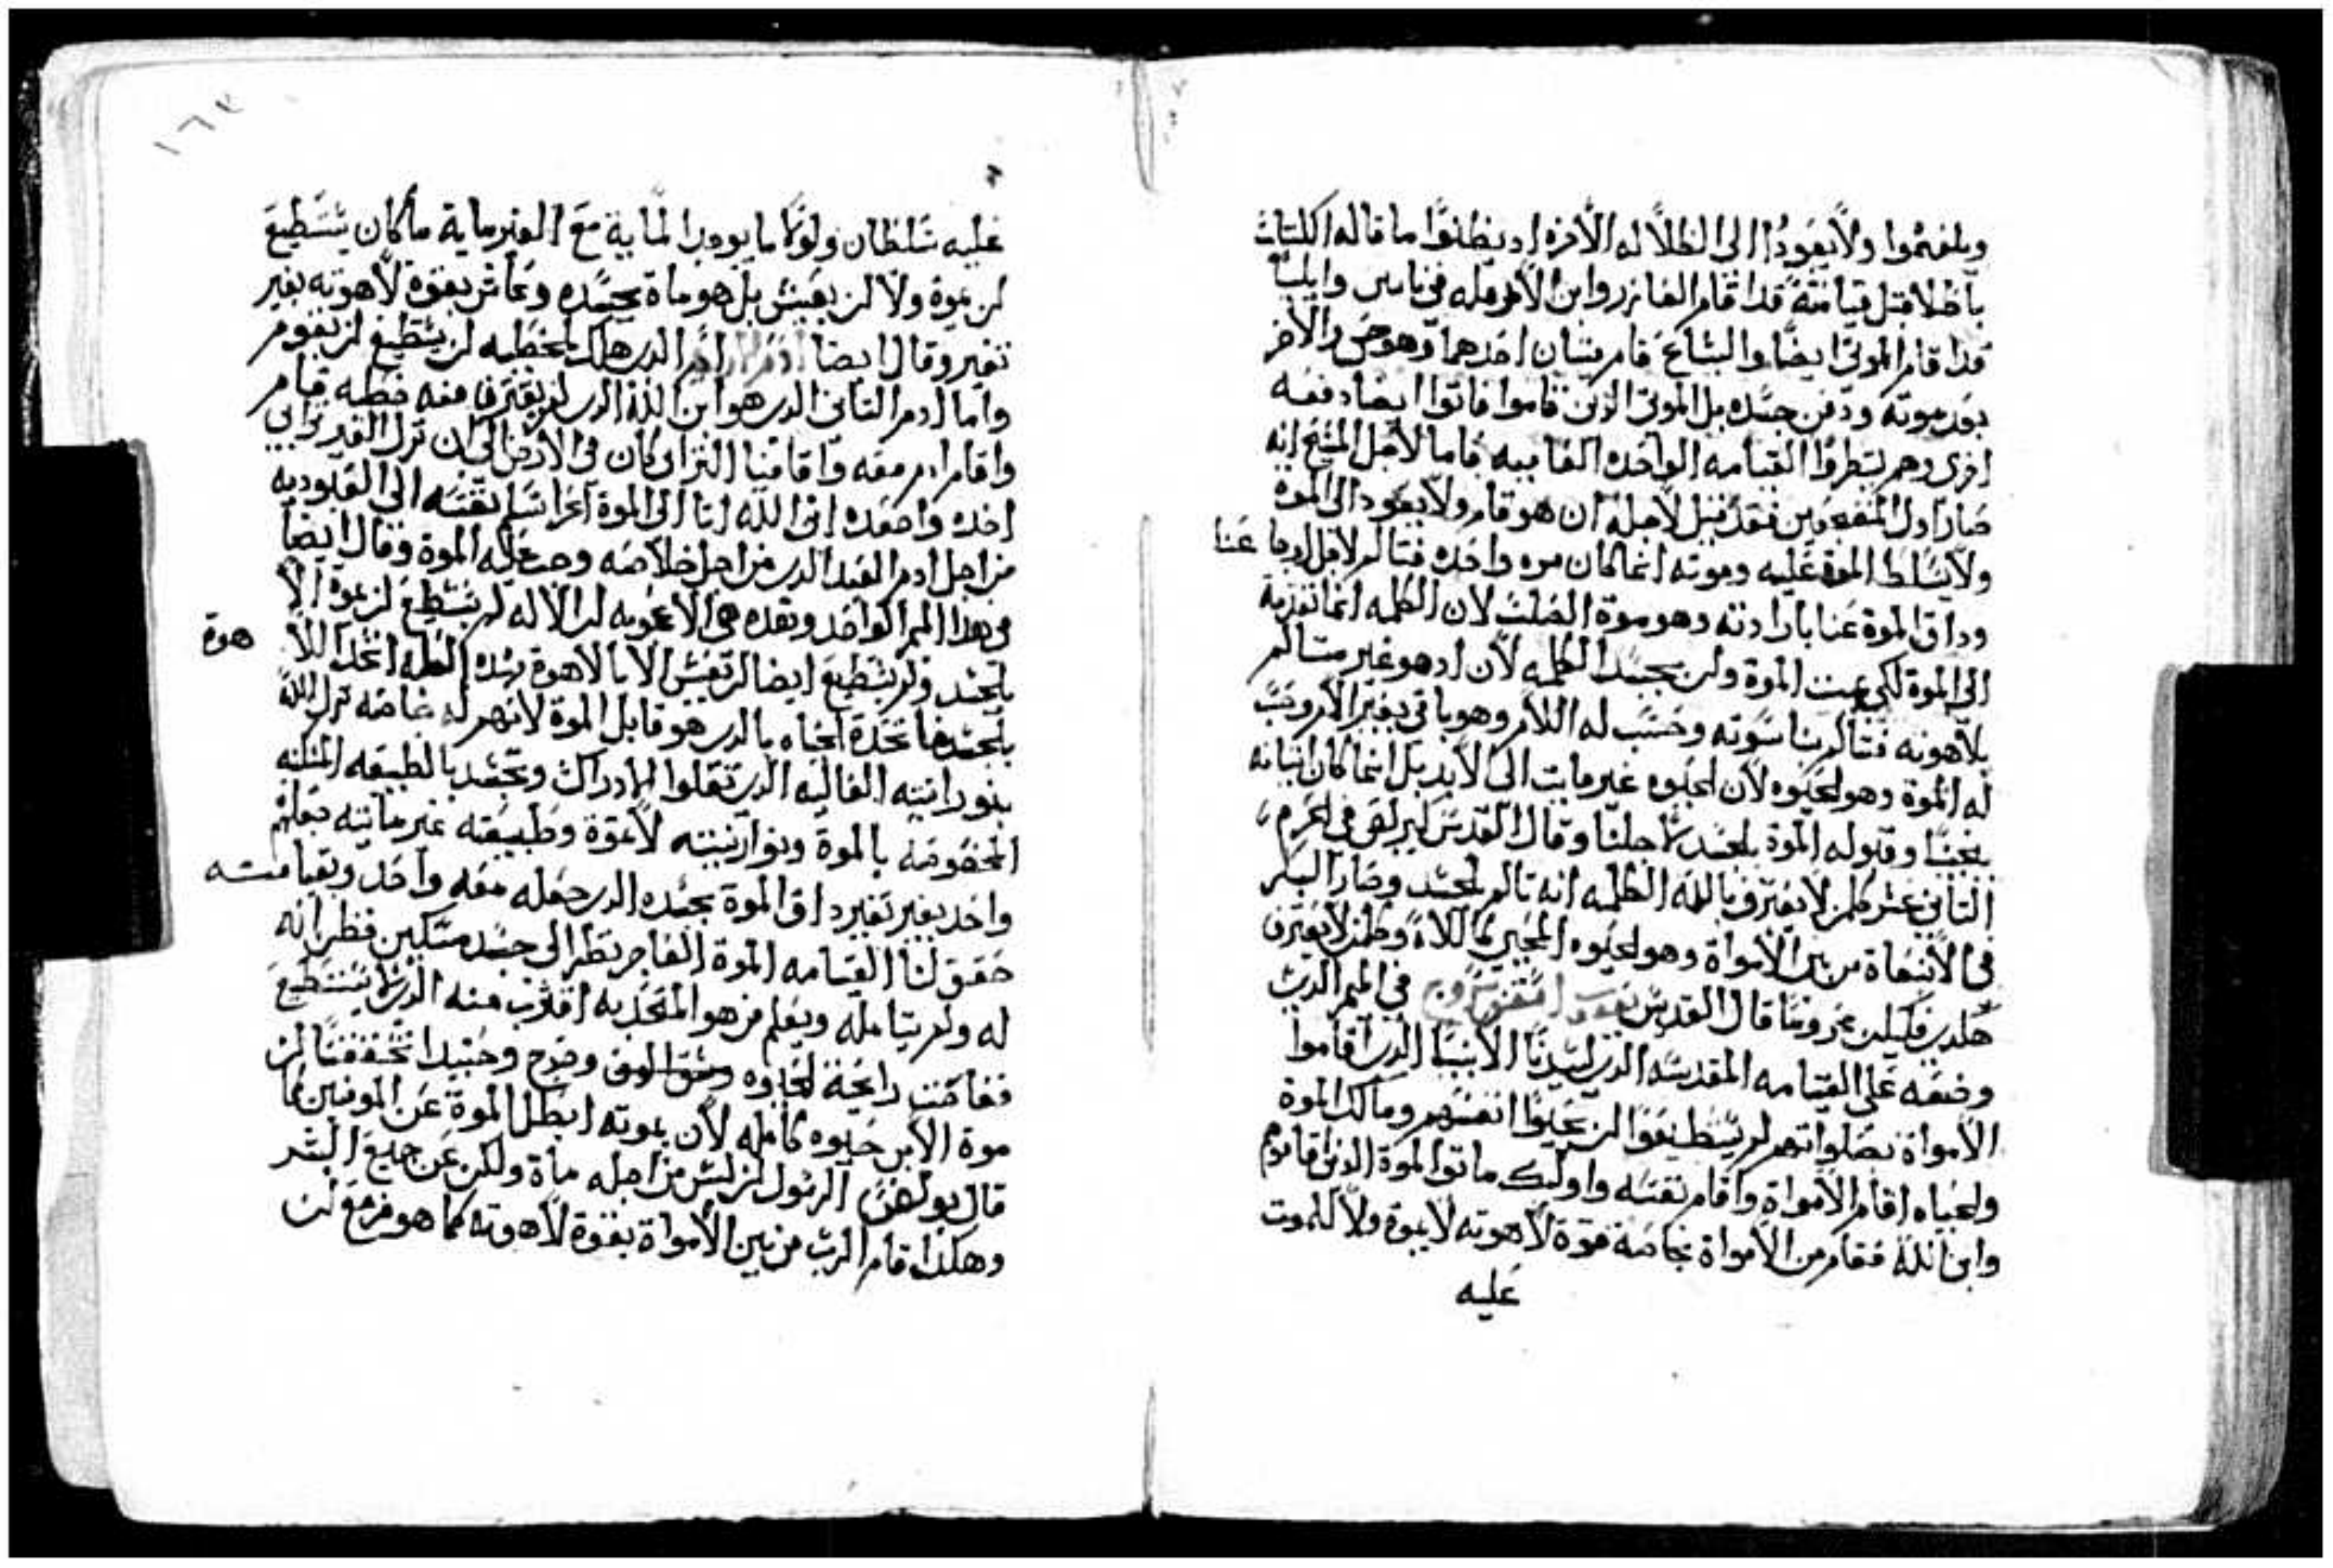 ويلغثوا ولا يعودوا الى الظلاله الاخره اد يظلنوا ما قاله الكتاب
باطلا قبل قيامته قدا قام العازر وابن الارمله في نايين وايليا
قدا قام الموتى ايضا واليشاع قام ميتان احدهما وهو حى والاخر
بعد موته ودفن جسده بل الموتى الذين قاموا ماتوا ايضا دفعه
اخرى وهم ينتظروا القيامه الواحده العامه فاما لاجل المسيح انه
صار اول المنبعثين فقد قيل لاجله ان هو قام ولا يعود الى الموة
ولا يتسلط الموة عليه وموته انما كان مره واحده فتالم لاجل عنا
وداق الموة عنا بارادته وهو موة الصلب لان الكلمه انما تقدم
الى الموة لكي يميت الموة ولن بجسد الكلمه لان اد هو غير متالم
بلاهوته فتالم بناسوته وحسب له الالام وهو باقى بغير الام وحسب
له الموة وهو الحيوه لان الحيوه غير مايت الى الابد بل انما كان اتيانه
بعينا وقبوله الموة بالجسد من اجلنا وقال القديس كيرلص في الحرم
التاني عشر كلمن لا يعترف بالله الكلمه انه تالم بالجسد وصار البكر
في الانبعاة من بين الامواة وهو الحيوه المحيى كالاله وكلمن لا يعترف
هكدى فليكن محروما قال القديس يعقوب السروجى في الميمر الدى
وضعه على القيامه المقدسه الدى لسيدنا الانبيا الدين اقاموا
الامواة بصلواتهم لم يستطيعوا ان يحيوا انفسهم ومالك الموة
والحياه اقام الامواة واقام نفسه واوليك ماتوا الموة الذين اقاموهم
وابن الله فقام من الامواة بخاصة قوة لاهوته لا يموة ولا للموت
عليه
١٦٣
عليه سلطان ولو كان ما يوجد الماية مع الغير ماية ما كان يستطيع
ان يموة ولا ان يعيش بل هو ماة بجسده وعاش بقوة لاهوته بغير
تغير وقال ايضا ادم الدى هلك بالخطيه لم يستطيع ان يقوم
واما ادم التانى الدى هو ابن الله الدى لم يقترف معه خطيه قام
واقام ادم معه واقامنا التراى كان في الارض الى ان نزل القديم واتى
اخده واصعده ابن الله اتا الى الموة نفسه الى العبوديه
من اجل ادم العبد الدى من اجل خلاصه وجب عليه الموة وقال ايضا
في هدا الميمر الواحد وهده هى الاعجوبه ان الاله لم يستطيع ان يموة الا
بالجسد ولم يستطيع ايضا ان يعيش الا بالاهوة بهده العله اتحد اللا هوة
بالجسد فاتحدة الحياه بالدى هو قابل الموة لانهم له خاصه نزل الله
بنورانيته العاليه الدى تعلوا الادراك وتجسد بالطبيعه المسكنه
المخصوصه بالموة ونورانيته لا تموة وطبيعته غير مايته جعلهم
واحد بغير تغير داق الموة بجسده الدى جعله معه واحد وبقيامته
حقق لنا القيامه الموة الفاجر نظر الى جسد مسكين فظن انه
له ولم يتامله ويعلم من هو المتحد به اقترب منه الدى لا يستطيع
ففاحت رايحة الحياوه وخرج وحينيدا تحققنا ان
موة الابن حيوه كامله لان بموته ابطل الموة عن المومنين كما
قال بولص الرسول ان ليس من اجله ماة ولكن عن جميع البشر
وهكدا قام الرب من بين الامواة بقوة لاهوته كما هو مزمع ان